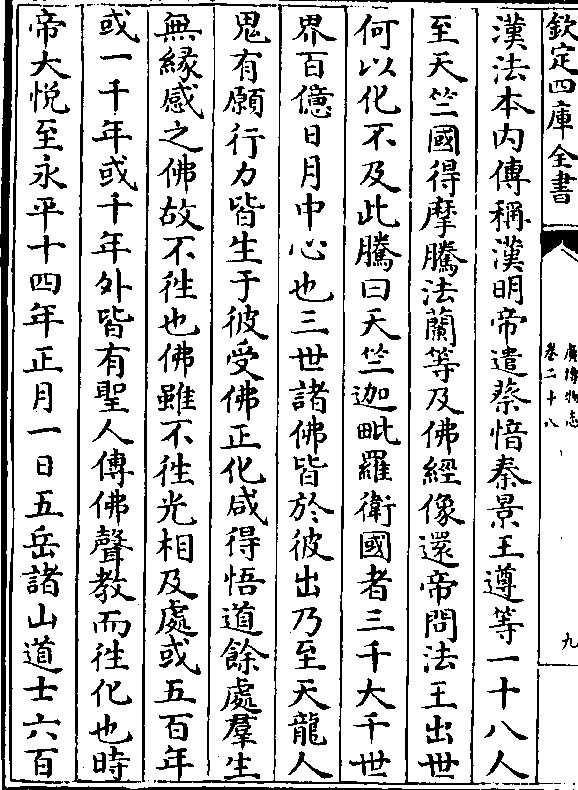 欽定四庫全書
廣博物志
卷二十八
九
漢法本内傳稱漢明帝遣蔡愔秦景王遵等一十八人
至天竺國得摩騰法蘭等及佛經像還帝問法王出世
何以化不及此騰曰天竺迦毗羅衛國者三千大千世
界百億日月中心也三世諸佛皆於彼出乃至天龍人
鬼有願行力皆生于彼受佛正化咸得悟道餘處羣生
無緣感之佛故不徃也佛雖不徃光相及處或五百年
或一千年或千年外皆有聖人傳佛聲教而徃化也時
帝大悦至永平十四年正月一日五岳諸山道士六百